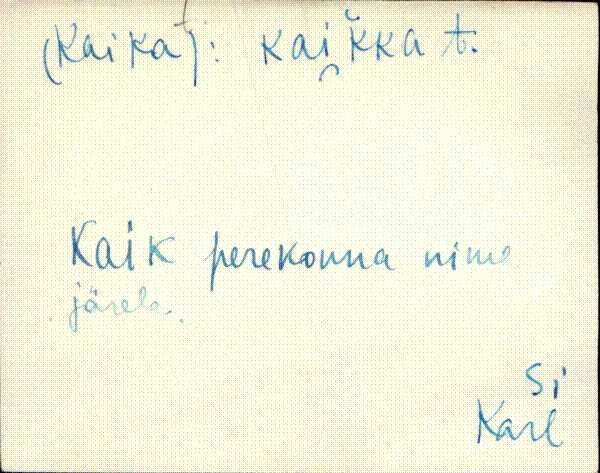 (Kaika t): kai̯kka t.
Kaik perekonna nime
järele.
Si
Karl